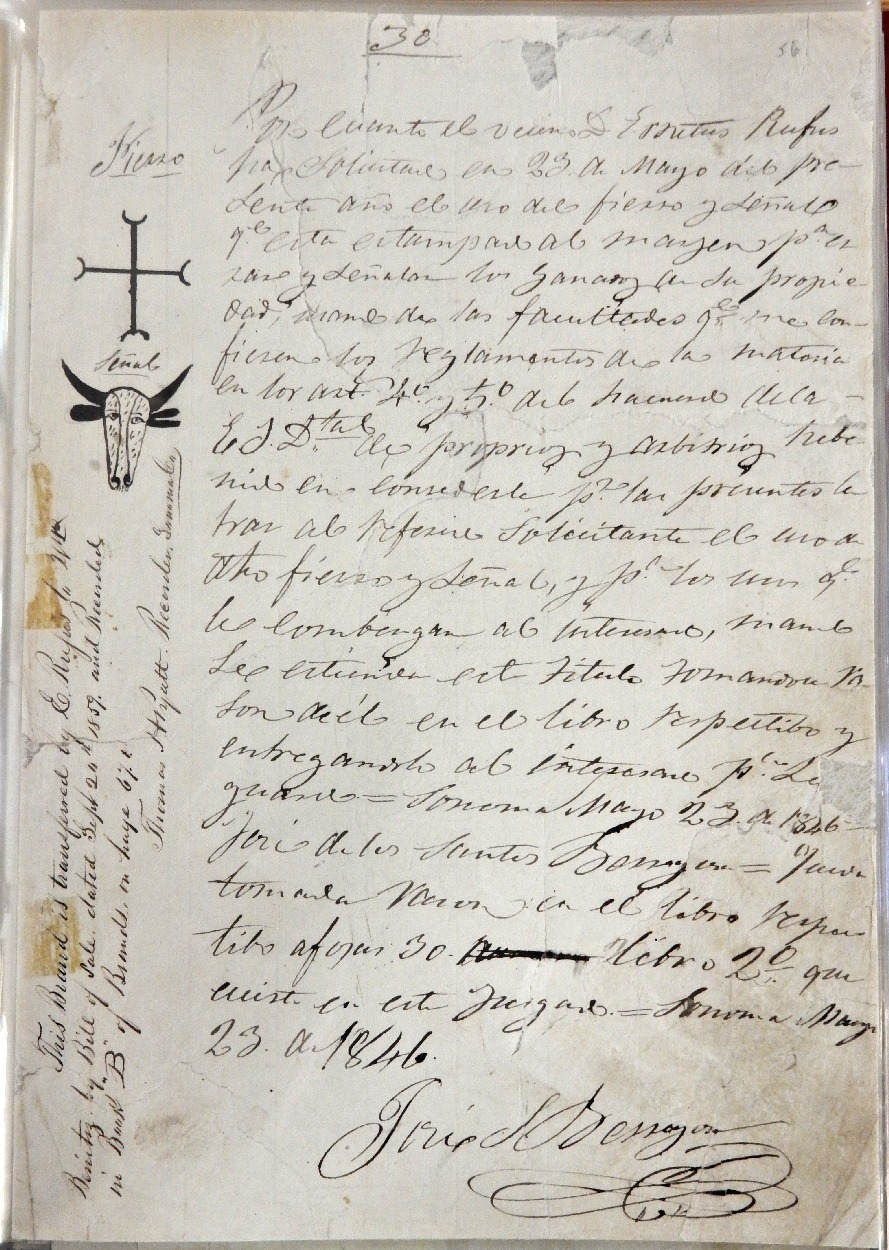 30
56
Fierro
Señal
Por Cuanto el vecino D Ernettus Rufus
ha Solicitado en 23. de Mayo del pre-
sente año el uso del fierro y Señal
q.e esta estampado al margen p.a er
rar y Señalar los Ganados de su propie-
dad, usando de las facultades q.e me con-
fieren los Reglamentos de la materia
en los art. 4.o y 5.o del
E S. D.tal de propios y arbitrios hebe-
nido en concederle p.r las presentes le
tras al referido Solicitante el uso de
dho fierro y Señal, y p.a los usos q.e
le combengan al interesado, mando
Se estienda este titulo tomandose ra-
son de él en el libro respectibo y
entregandolo al interesado p.a Su
guarda = Sonoma Mayo 23. de 1846 =
José de los Santos Berreyesa = Queda
tomada razon en el libro respec
tibo afojas 30. libro 2.o que
existe en este Juzgado. = Sonoma Mayo
23. de 1846.
José S Berreyesa
This Brand is transferred by E. Rufus to
Benitz by Bill of Sale, dated Sept 20th 1859. and Recorded
in Book "B" of Brands, on page 67.
Thomas Hyatt. Recorder, Sonoma Co